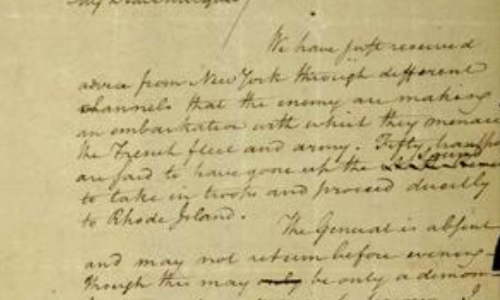 My Dear Marquis
We have just received
advice from New York through different
channels that the enemy are making
an embarkation with which they menace
the French fleet and army. Fifty transpo
are said to have gone up the Sound
to take in troops and proceed directly
to Rhode Island.
The General is absent
and may not return before evening
Though this may only be only a demon